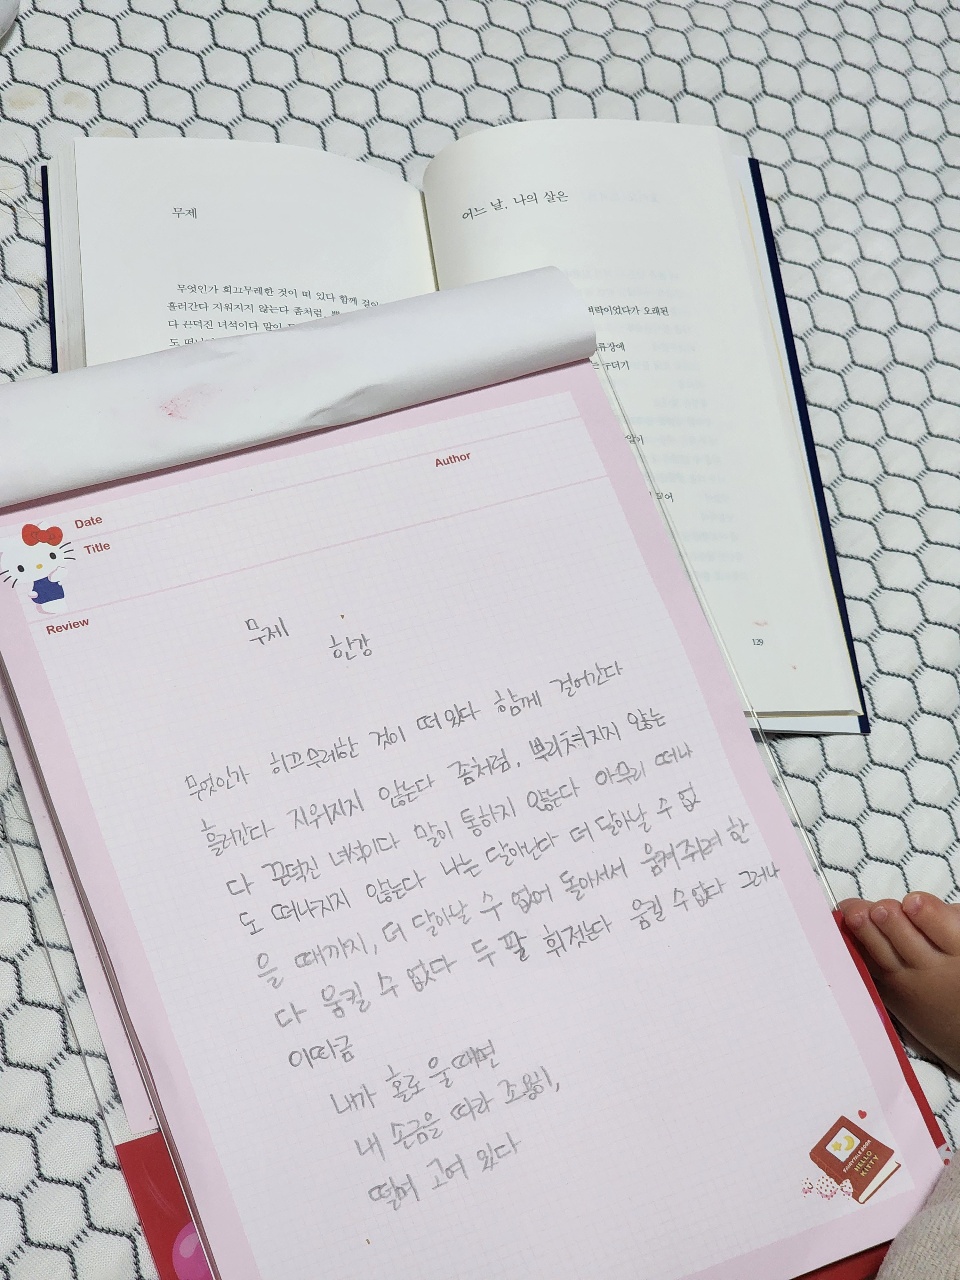 무제
무엇인가 희끄무레한 것이 떠 있다 함께 걸어
흘러간다 지워지지 않는다 좀처럼,
다 끈덕진 녀석이다 말이
도
어느 날, 나의 살은
벼락이었다가 오래된
류장에
는 누더기
않기
되어
129
Date
Author
Title
Review
무제
한강
무엇인가 희끄무레한 것이 떠 있다 함께 걸어간다
흘러간다 지워지지 않는다 좀처럼, 뿌리쳐지지 않는
다 끈덕진 녀석이다 말이 통하지 않는다 아무리 떠나
도 떠나지지 않는다 나는 달아난다 더 달아날 수 없
을 때까지, 더 달아날 수 없어 돌아서서 움켜쥐려 한
다 움킬 수 없다 두 팔 휘젓는다 움킬 수 없다 그러나
이따금
내가 홀로 울 때면
내 손금을 따라 조용히,
떨며 고여 있다
FAIRYTALE BOOK
HELLO
KITTY